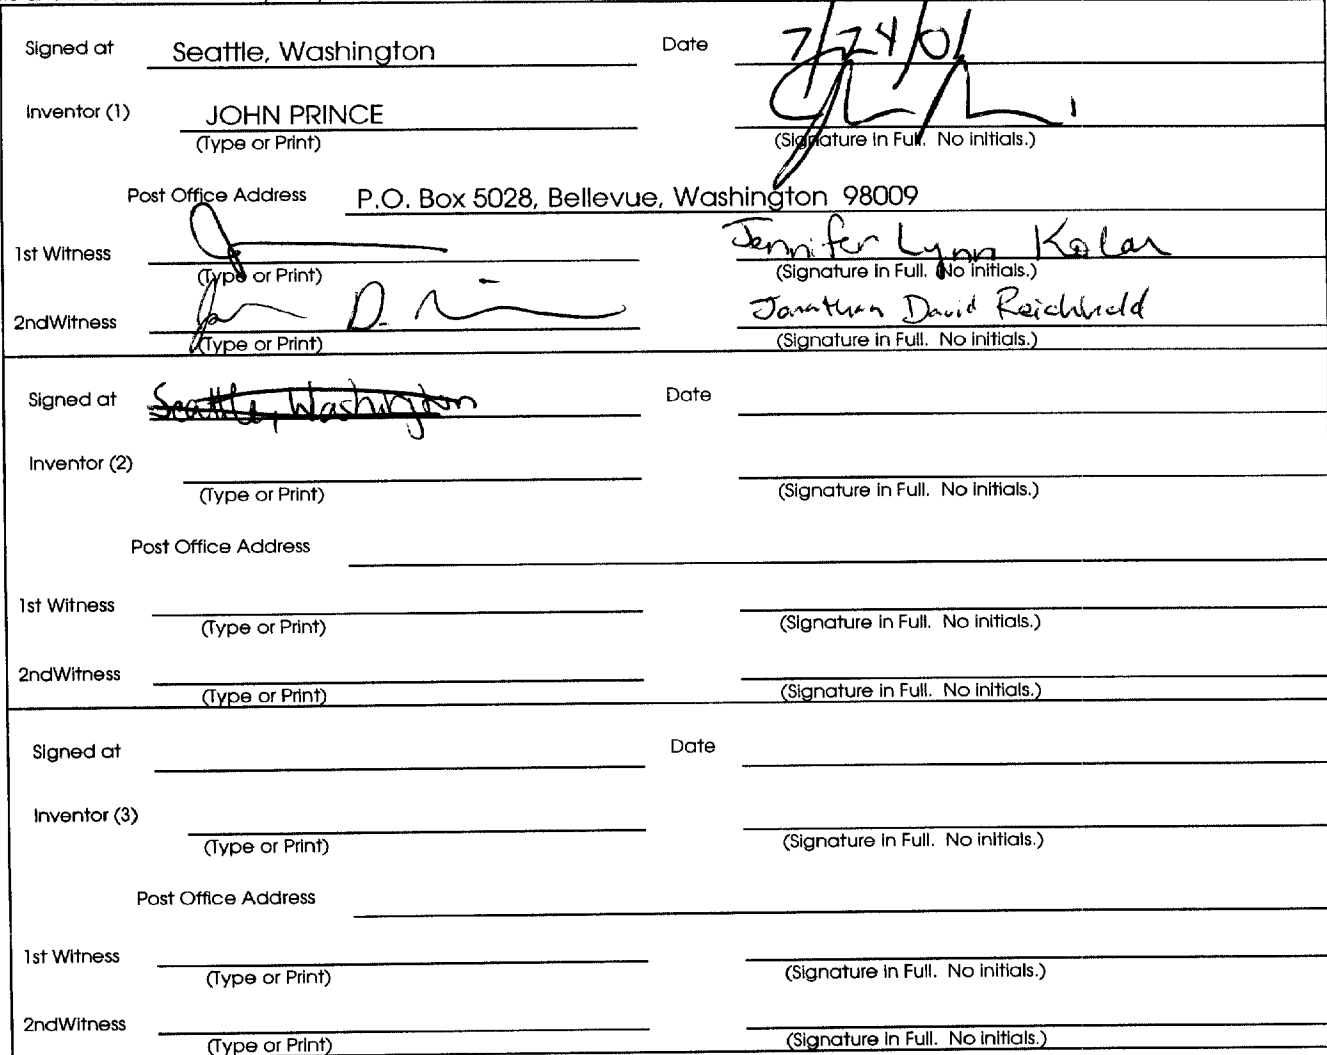 Signed at Seattle, Washington Date 7/24/01
Inventor (1) JOHN PRINCE
(Type or Print) (Signature in Full. No initials.)
Post Office Address P.O. Box 5028, Bellevue, Washington 98009
1st Witness Jennifer Lynn Kolar
(Type or Print) (Signature in Full. No initials.)
2ndWitness D. Jonathan David Reichhold
(Type or Print) (Signature in Full. No initials.)
Signed at Seattle, Washington Date
Inventor (2)
(Type or Print) (Signature in Full. No initials.)
Post Office Address
1st Witness
(Type or Print) (Signature in Full. No initials.)
2ndWitness
(Type or Print) (Signature in Full. No initials.)
Signed at Date
Inventor (3)
(Type or Print) (Signature in Full. No initials.)
Post Office Address
1st Witness
(Type or Print) (Signature in Full. No initials.)
2ndWitness
(Type or Print) (Signature in Full. No initials.)